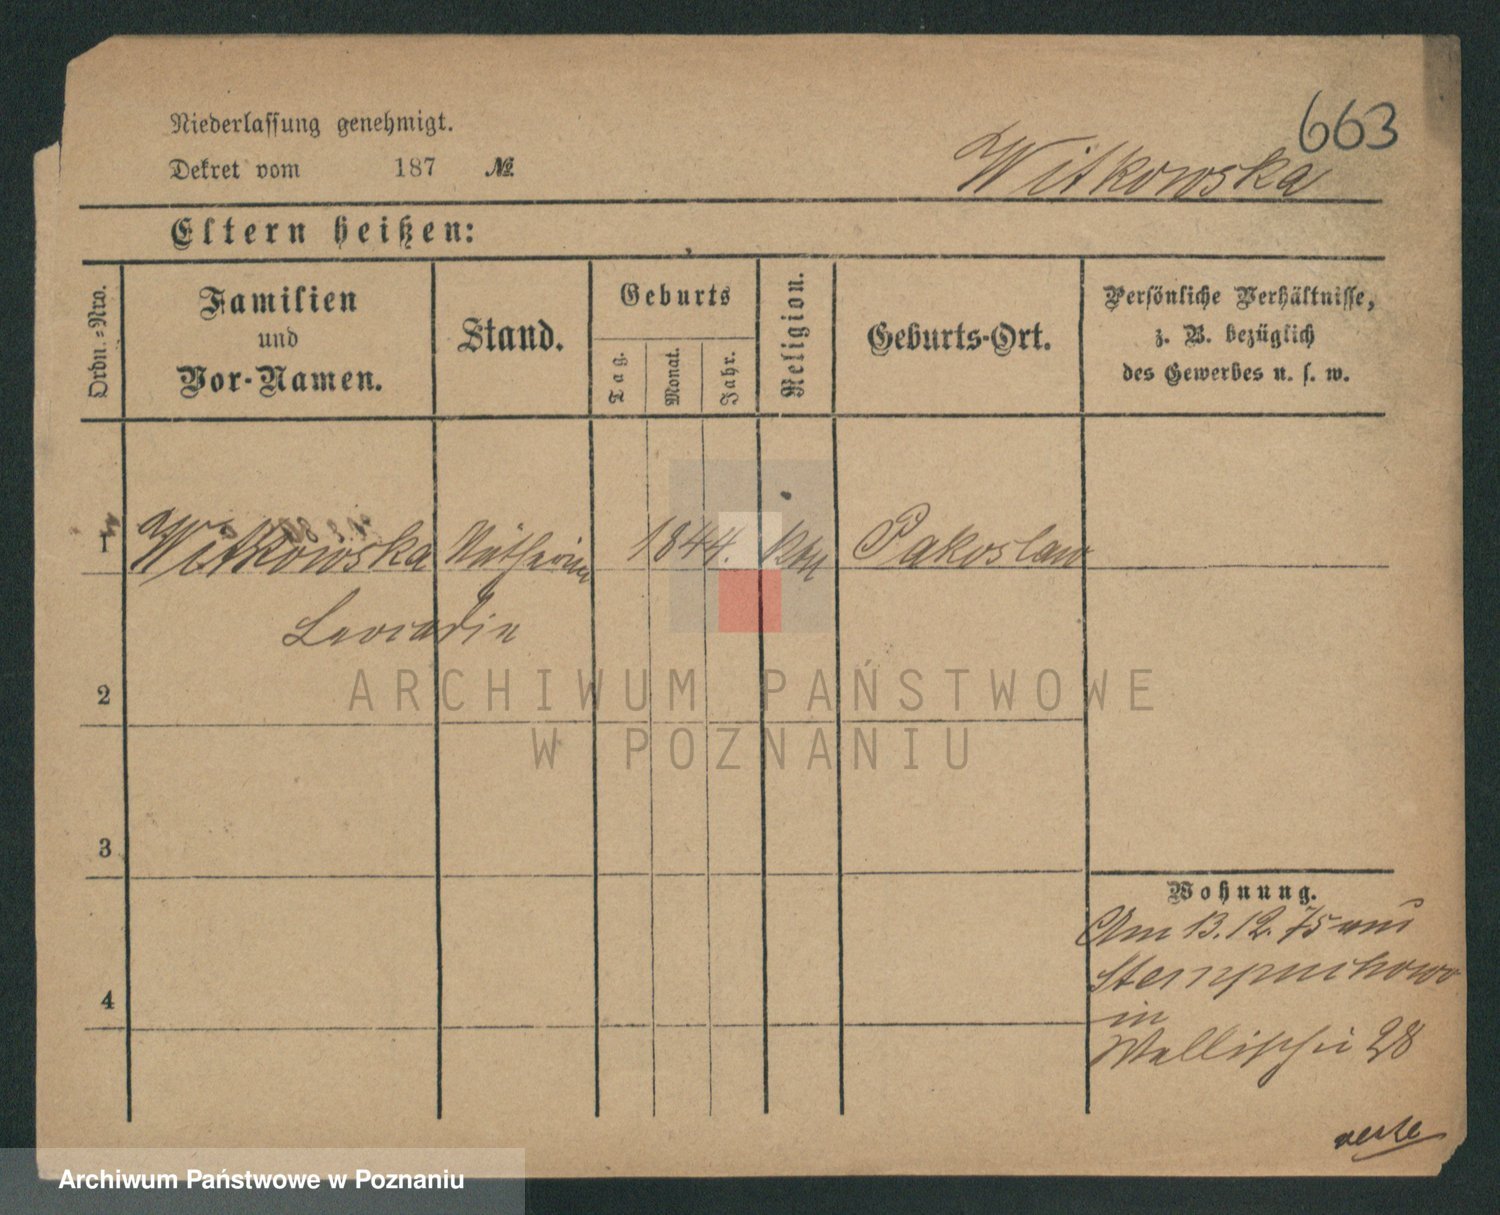 663
Niederlassung genehmigt.
Dekret vom 187 №
Witkowska
Eltern heißen:
Ordn.-Nro.
Familien
und
Vor-Namen.
Stand.
Geburts
Tag.
Monat.
Jahr.
Religion.
Geburts-Ort.
Persönliche Verhältnisse,
z. B. bezüglich
des Gewerbes u. s. w.
1 Witkowska Nätherin 1844. Kth Pakoslaw
Leocadie
2
3
4
Wohnung.
Am 13.12.75 aus
in
Wallischei 28
verte
ARCHIWUM PAŃSTWOWE
W POZNANIU
Archiwum Państwowe w Poznaniu